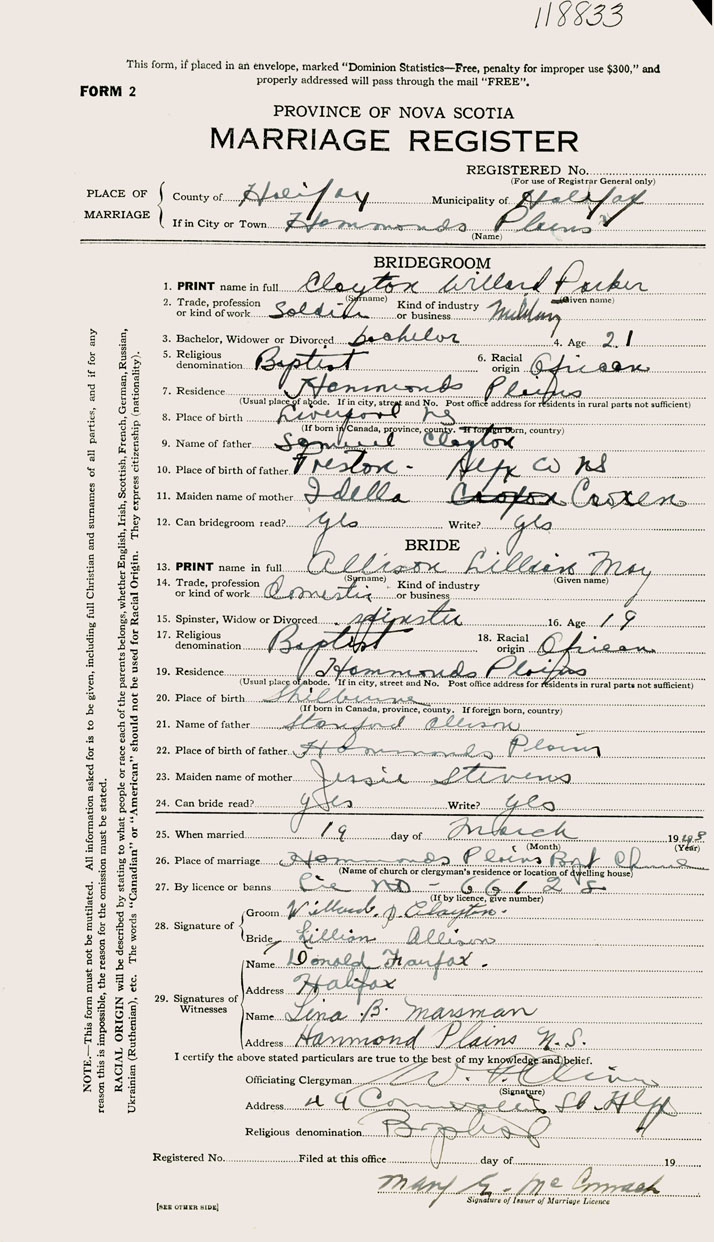 118833
This form, if placed in an envelope, marked "Dominion Statistics—Free, penalty for improper use $300," and
properly addressed will pass through the mail "FREE".
FORM 2
PROVINCE OF NOVA SCOTIA
MARRIAGE REGISTER
REGISTERED No.
(For use of Registrar General only)
PLACE OF MARRIAGE
County of Halifax Municipality of Halifax
If in City or Town Hammonds Plains
(Name)
BRIDEGROOM
1. PRINT name in full Clayton Willard Parker
(Surname) (Given name)
2. Trade, profession or kind of work Soldier Kind of industry or business Military
3. Bachelor, Widower or Divorced bachelor 4. Age 21
5. Religious denomination Baptist 6. Racial origin African
7. Residence Hammonds Plains
(Usual place of abode. If in city, street and No. Post office address for residents in rural parts not sufficient)
8. Place of birth Liverpool NS
(If born in Canada, province, county. If foreign born, country)
9. Name of father Samuel Clayton
10. Place of birth of father Preston - Hfx Co NS
11. Maiden name of mother Idella Croxen
12. Can bridegroom read? yes Write? yes
BRIDE
13. PRINT name in full Allison Lillian May
(Surname) (Given name)
14. Trade, profession or kind of work Domestic Kind of industry or business
15. Spinster, Widow or Divorced spinster 16. Age 19
17. Religious denomination Baptist 18. Racial origin African
19. Residence Hammonds Plains
(Usual place of abode. If in city, street and No. Post office address for residents in rural parts not sufficient)
20. Place of birth Shelburne
(If born in Canada, province, county. If foreign born, country)
21. Name of father Stanford Allison
22. Place of birth of father Hammonds Plains
23. Maiden name of mother Jessie Stevens
24. Can bride read? yes Write? yes
25. When married 19 day of March 19
(Month) (Year)
26. Place of marriage Hammonds Plains Bapt Church
(Name of church or clergyman's residence or location of dwelling house)
27. By licence or banns Lic No - 66128
(If by licence, give number)
28. Signature of
Groom Willard. P. Clayton.
Bride Lillian Allison
29. Signatures of Witnesses
Name Donald Fairfax.
Address Halifax
Name Lina B. Marsman
Address Hammond Plains N.S.
I certify the above stated particulars are true to the best of my knowledge and belief.
Officiating Clergyman W. P. Oliver
(Signature)
Address 49 Cornwallis St Hfx
Religious denomination Baptist
Registered No. Filed at this office day of 19
Mary G. McCormack
Signature of Issuer of Marriage Licence
[SEE OTHER SIDE]
NOTE.—This form must not be mutilated. All information asked for is to be given, including full Christian and surnames of all parties, and if for any
reason this is impossible, the reason for the omission must be stated.
RACIAL ORIGIN will be described by stating to what people or race each of the parents belongs, whether English, Irish, Scottish, French, German, Russian,
Ukrainian (Ruthenian), etc. The words "Canadian" or "American" should not be used for Racial Origin. They express citizenship (nationality).